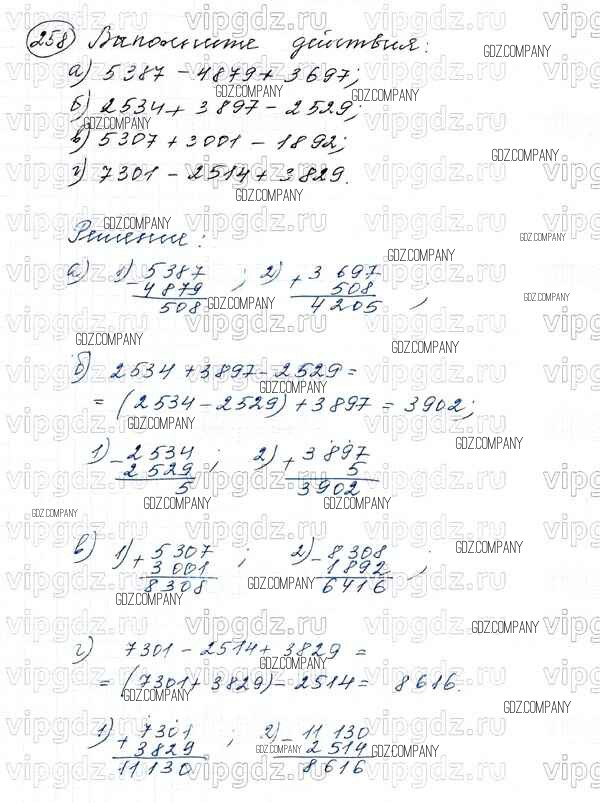 258 Выполните действия:
а) 5387 - 4879 + 3697;
б) 2534 + 3897 - 2529;
в) 5307 + 3001 - 1892;
г) 7301 - 2514 + 3829.
Решение:
а) 1) - 5387 ; 2) + 3 697
4879 508
508 4205 ;
б) 2534 + 3897 - 2529 =
= (2534 - 2529) + 3897 = 3902;
1) - 2534 ; 2) + 3897
2529 5
5 3902
в) 1) + 5307 ; 2) - 8308 ;
3001 1892
8308 6416
г) 7301 - 2514 + 3829 =
= (7301 + 3829) - 2514 = 8616.
1) + 7301 ; 2) - 11 130
3829 2514
11130 8616
vipgdz.ru
GDZ.COMPANY